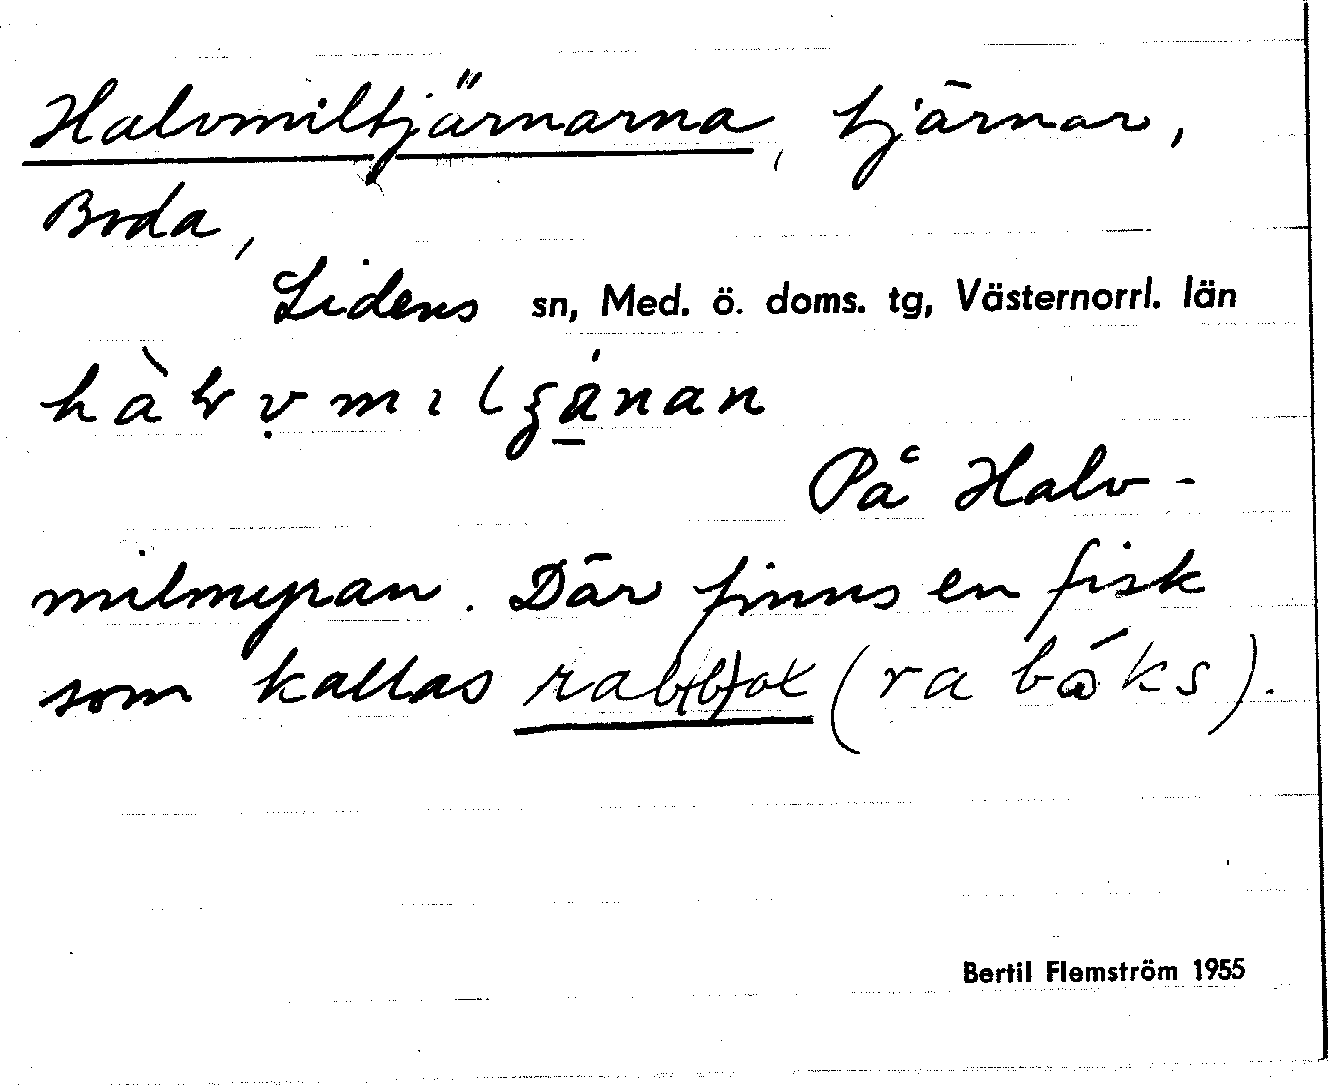 Halvmiltjärnarna, tjärnar,
Boda,
Lidens sn, Med. ö. doms. tg, Västernorrl. län
På Halv-
milmyran. Där finns en fisk
som kallas (ra båks).
Bertil Flemström 1955